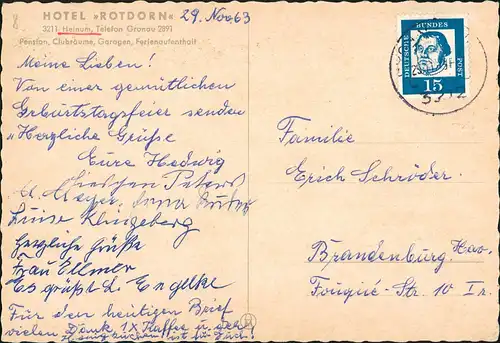 8
HOTEL »ROTDORN«
29. Nov. 63
3211 Heinum, Telefon Gronau 2891
Pension, Clubräume, Garagen, Ferienaufenthalt
DEUTSCHE BUNDES POST
15
Meine Lieben!
Von einer gemütlichen
Geburtstagsfeier senden
Herzliche Grüße
Eure Hedwig
Peters
Meyer, Erna
Luise Klingeberg
herzliche Grüße
Frau Ellmer
Es grüßt L. Engelke
Für den heutigen Brief
vielen Dank 1x Kaffee u.
ist für Euch!
Familie
Erich Schröder.
Brandenburg. Hav.
Fouqué-Str. 10 Ir.